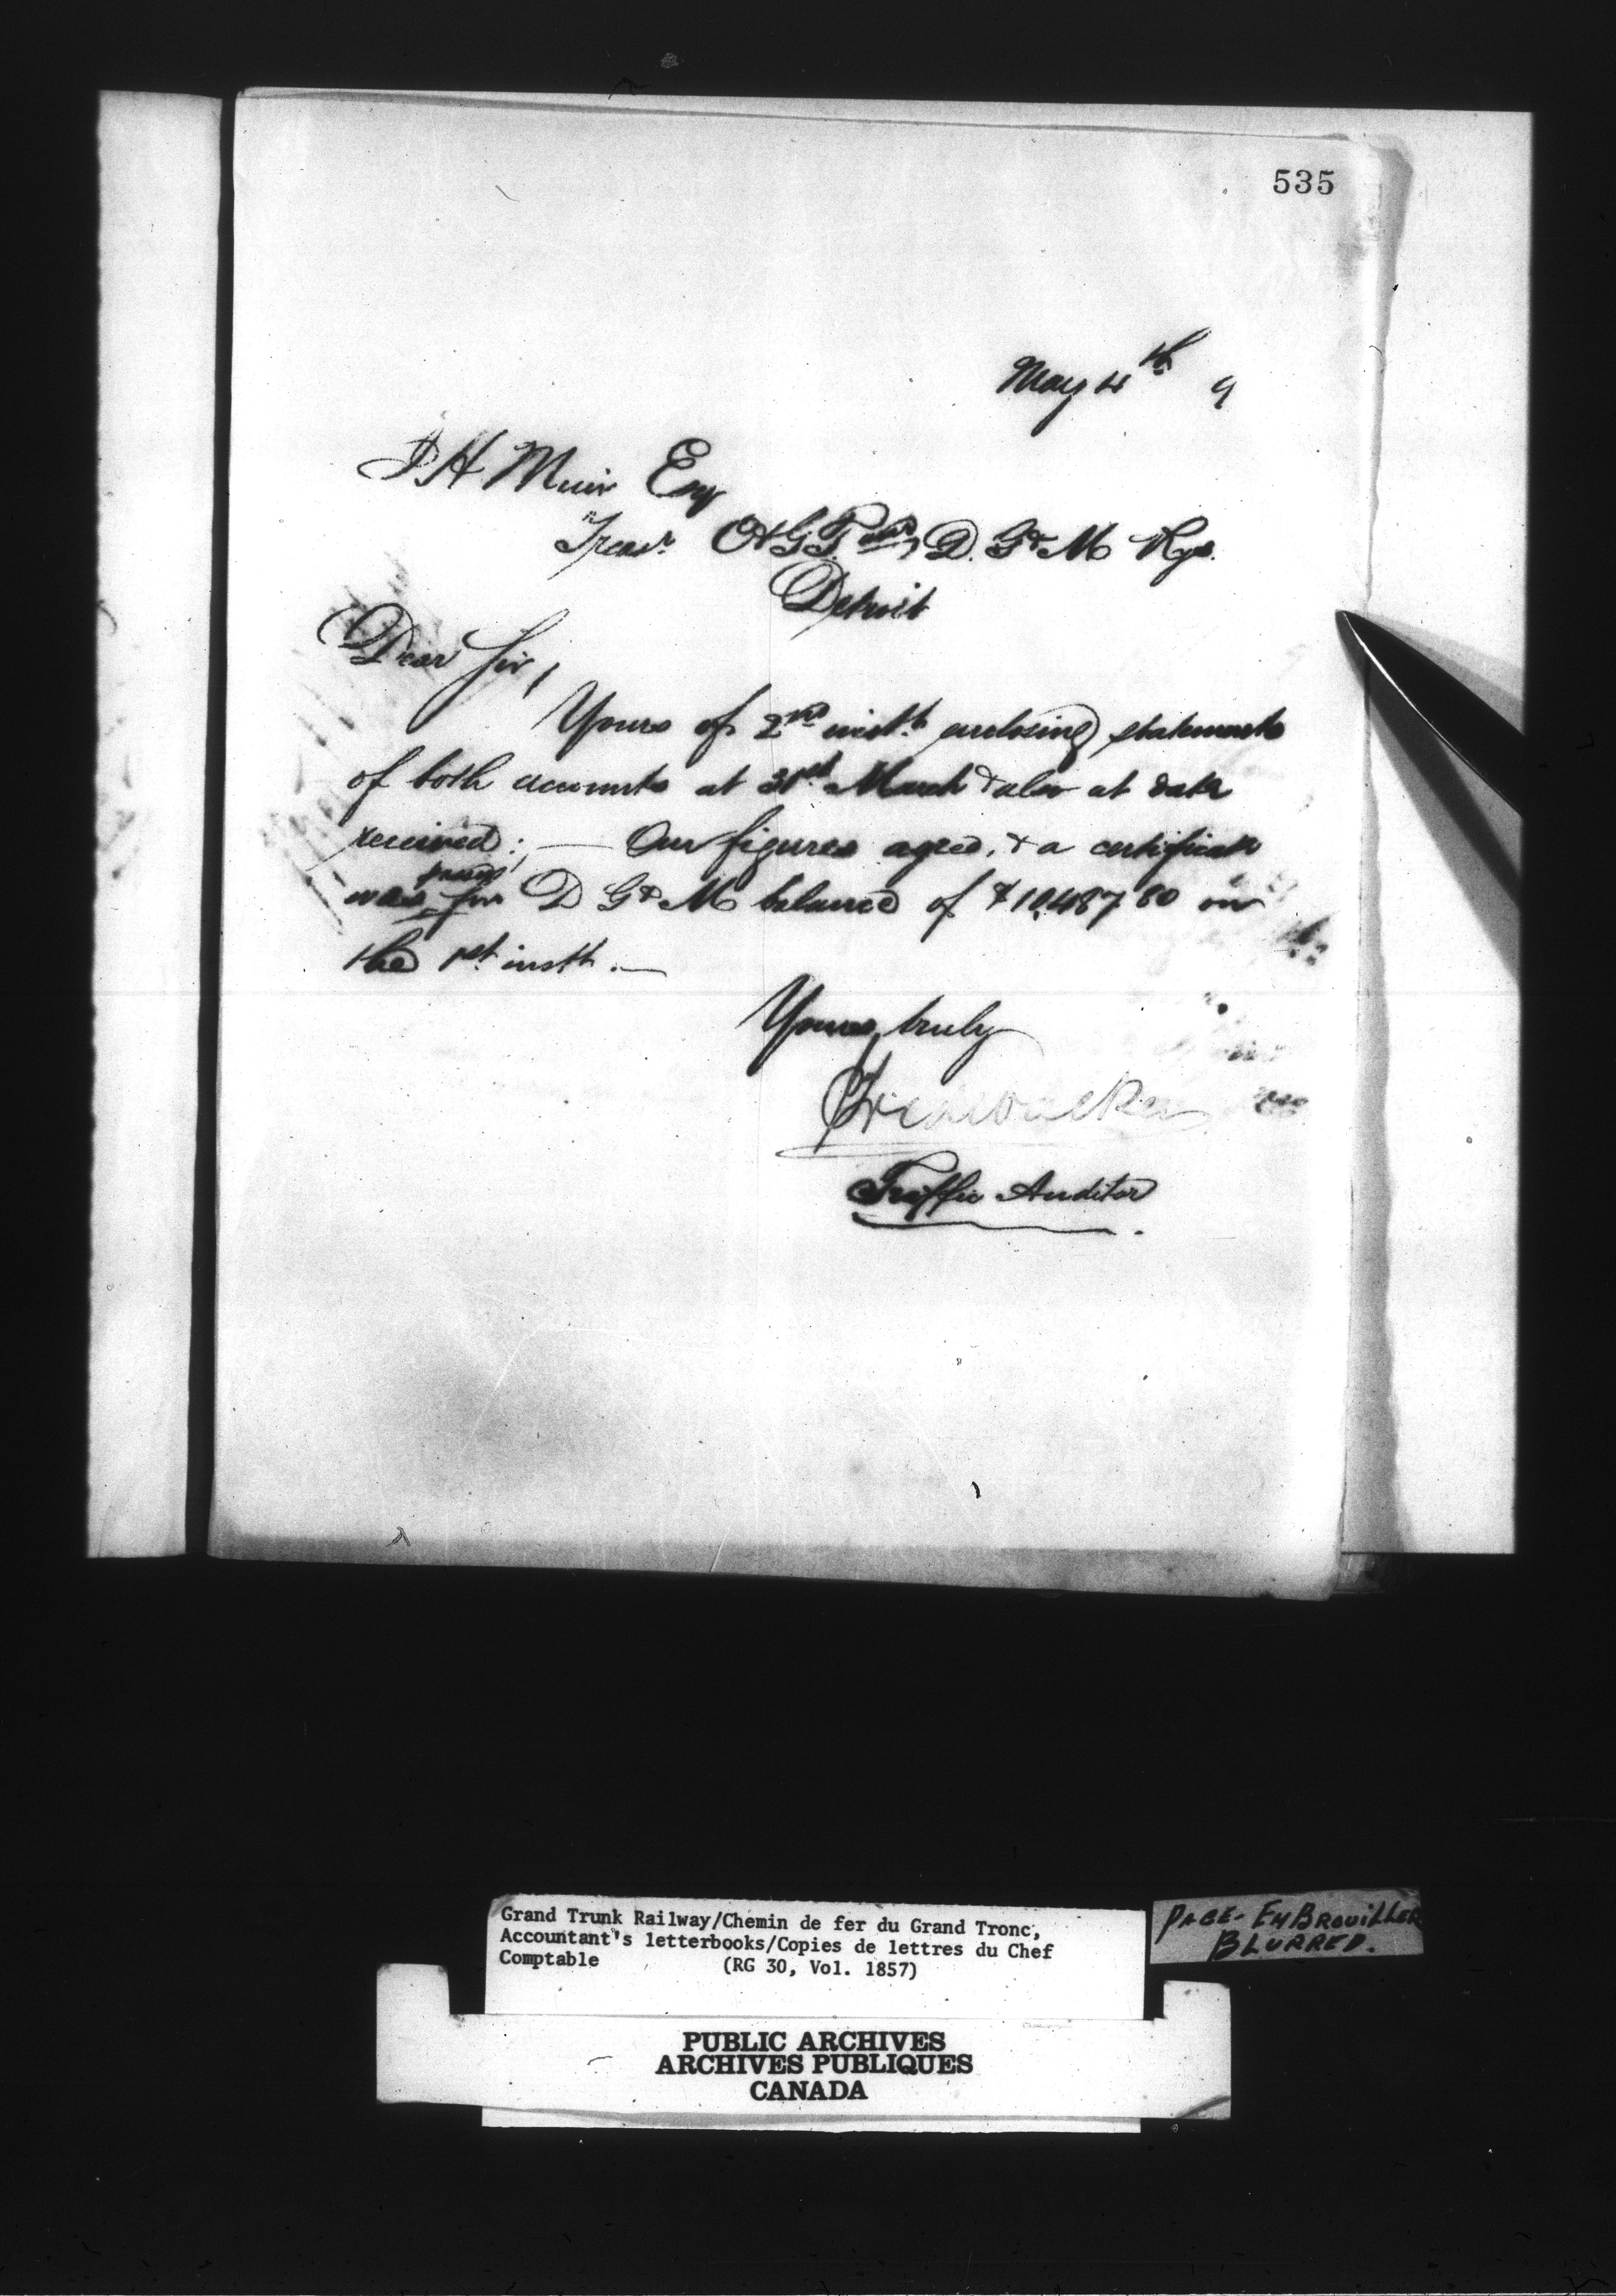 535
May 4th 9
J H Muir Esq
Treasr C & G T. and D. G & M Rys.
Detroit
Dear Sir,
Yours of 2nd inst. enclosing statements
of both accounts at 31st March & also at date
received: — Our figures agree, & a certificate
was passed for D G & M balance of $10,487 80 on
the 1st inst. —
Yours truly
Traffic Auditor
Grand Trunk Railway/Chemin de fer du Grand Tronc,
Accountant's letterbooks/Copies de lettres du Chef
Comptable (RG 30, Vol. 1857)
PAGE - EMBROUILLER
BLURRED.
PUBLIC ARCHIVES
ARCHIVES PUBLIQUES
CANADA